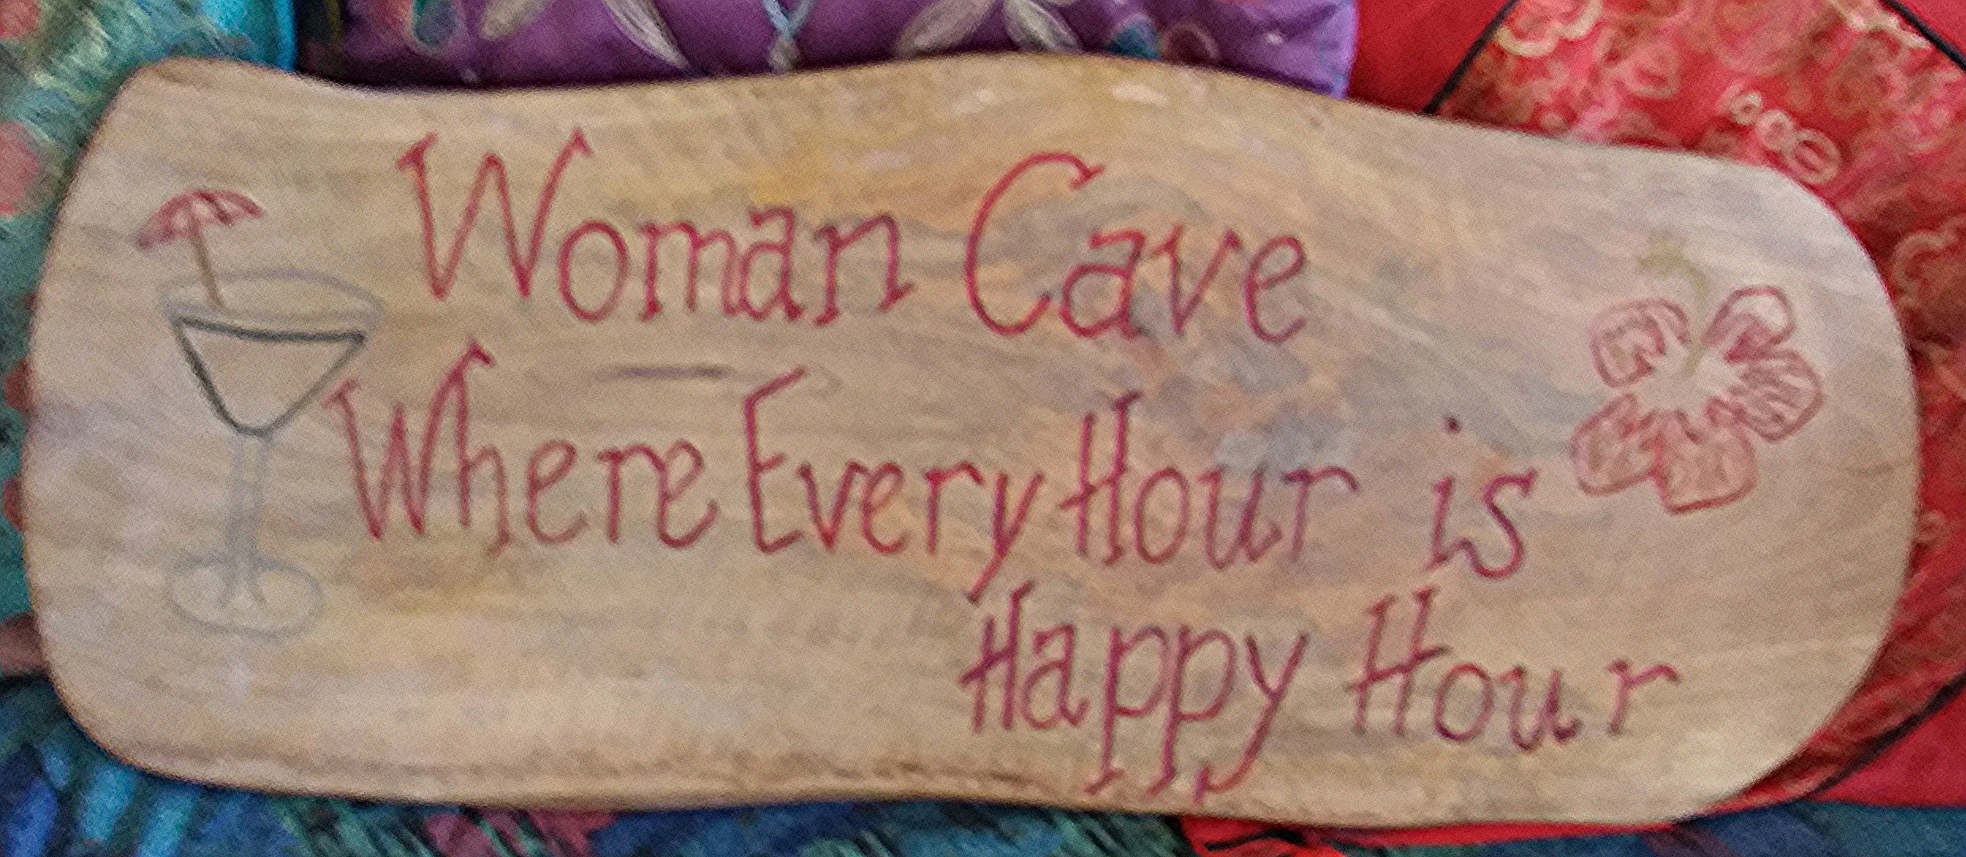 Woman Cave
Where Every Hour is
Happy Hour